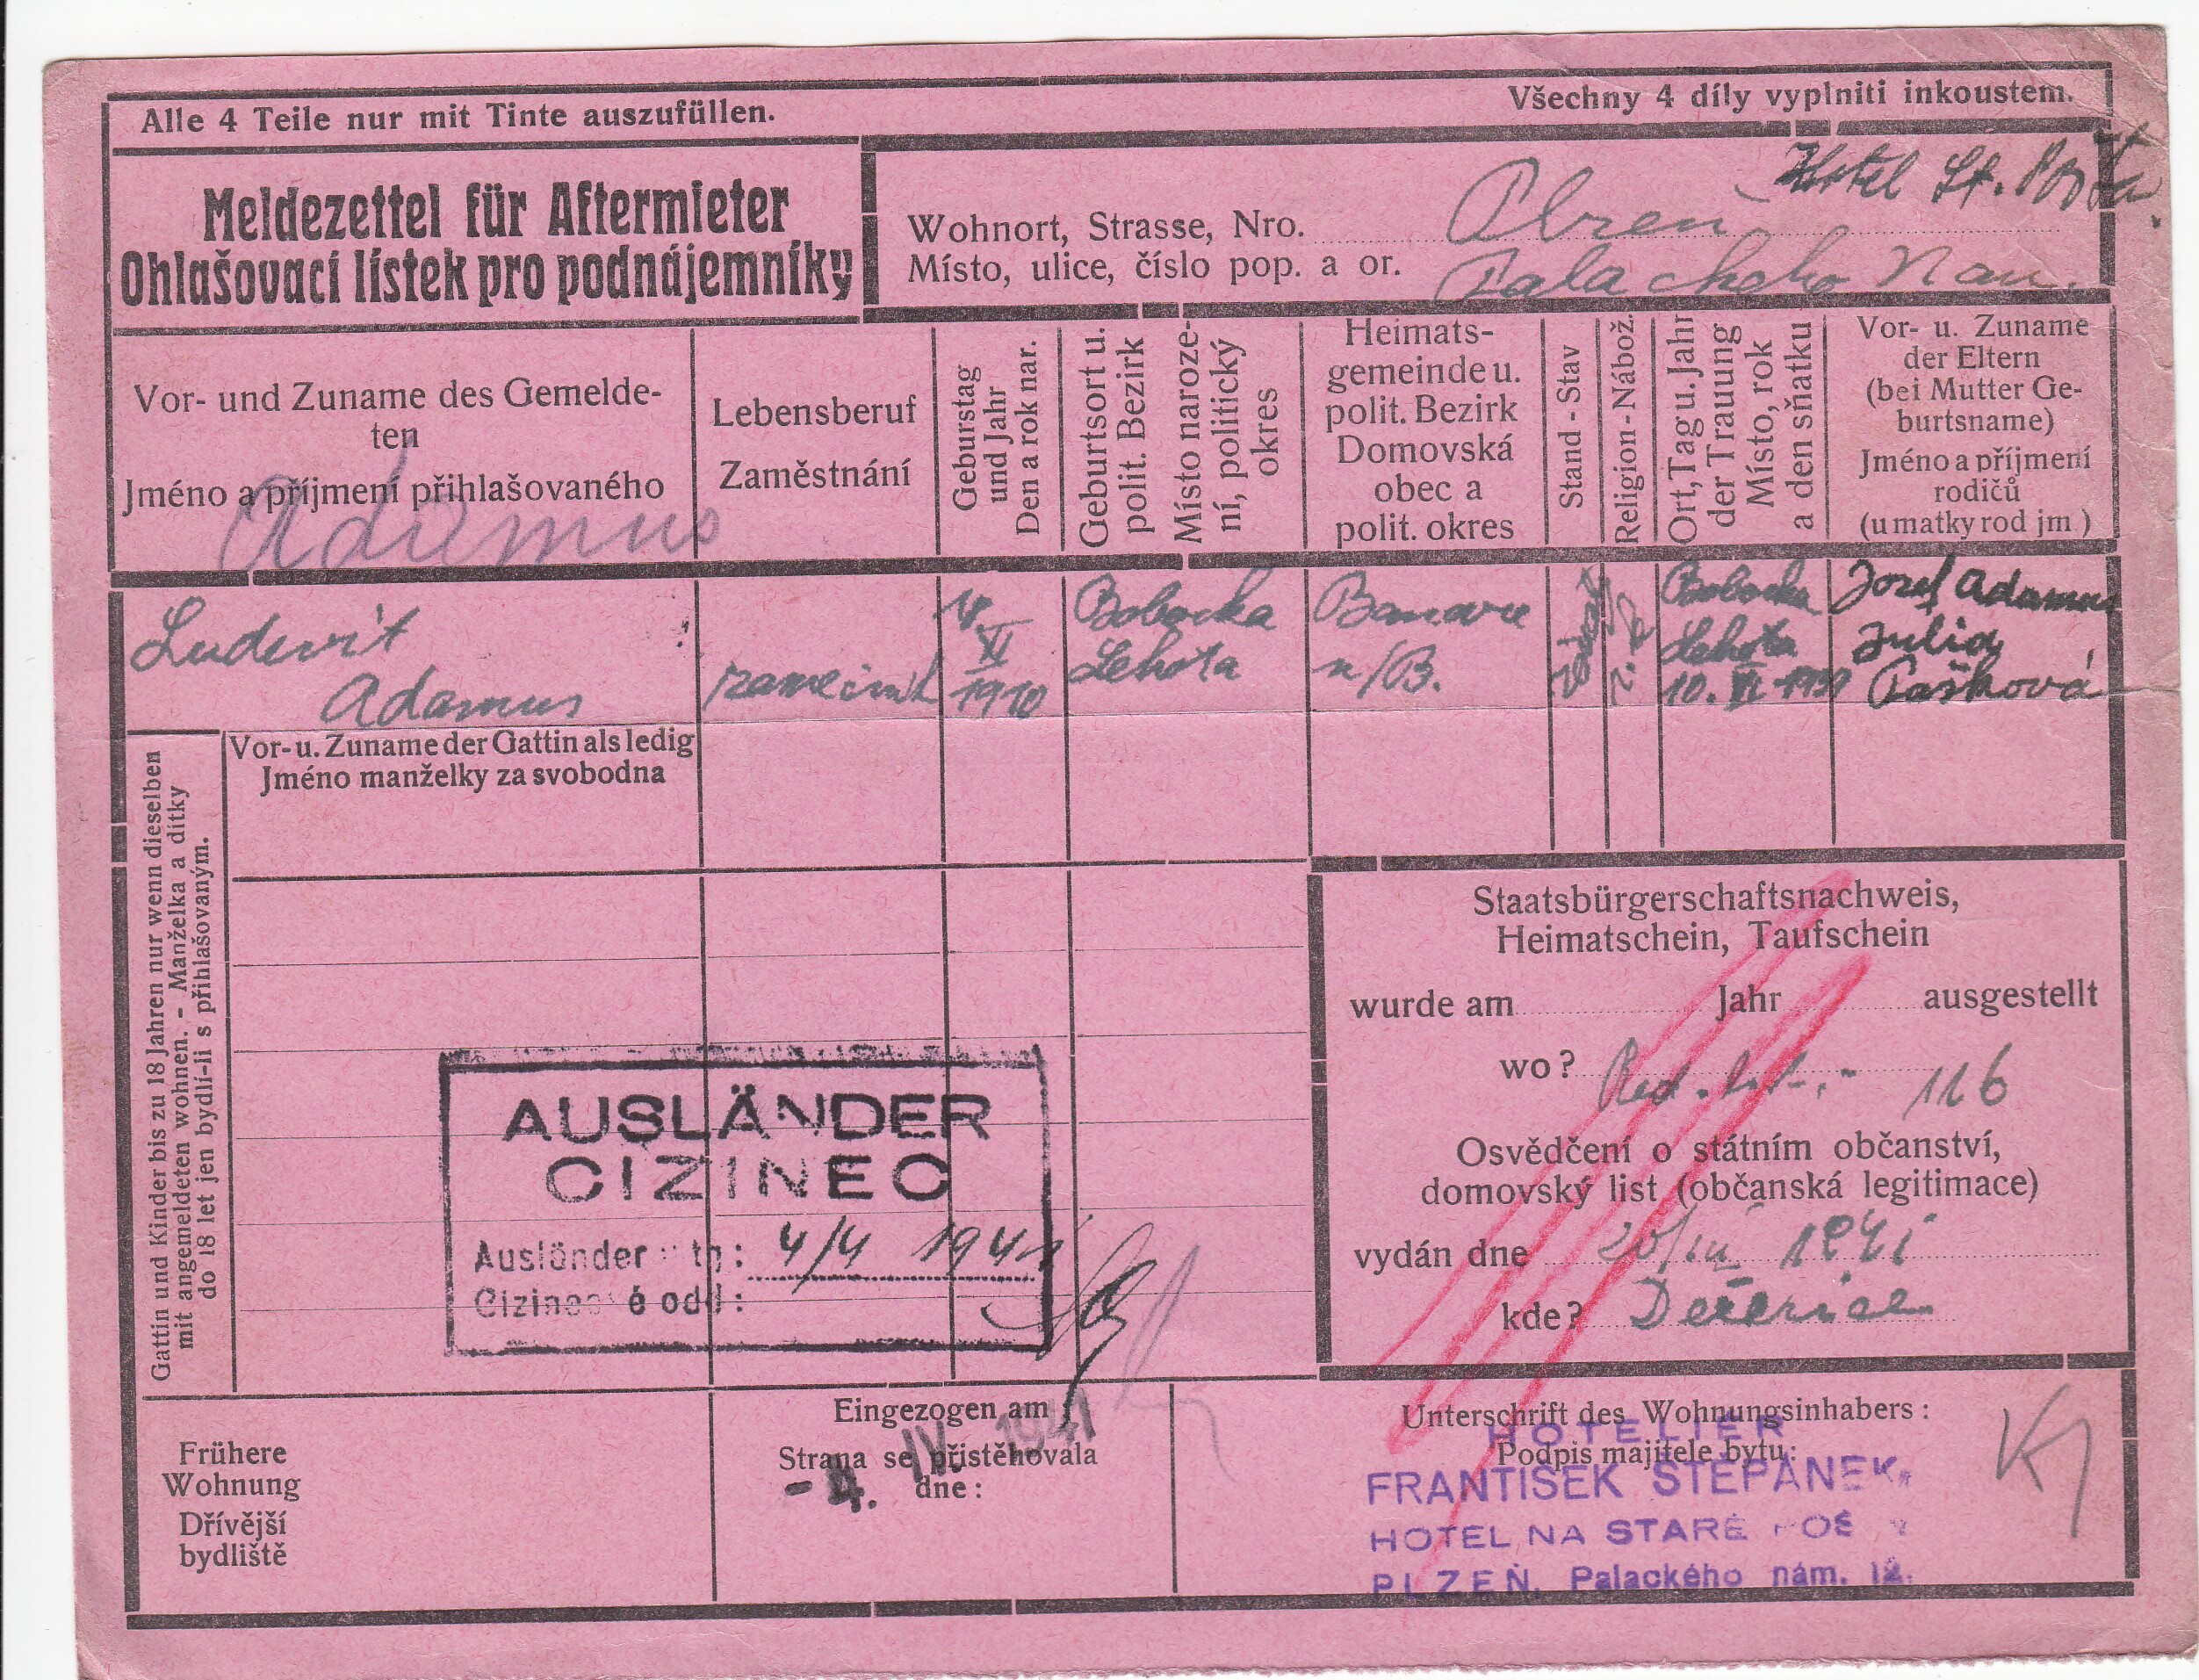 Alle 4 Teile nur mit Tinte auszufüllen.
Všechny 4 díly vyplniti inkoustem.
Meldezettel für Aftermieter
Ohlašovací lístek pro podnájemníky
Hotel St. Pošta.
Wohnort, Strasse, Nro. Plzeň
Místo, ulice, číslo pop. a or. Palackeho Nam.
Vor- und Zuname des Gemelde-
ten
Jméno a příjmení přihlašovaného
Adamus
Lebensberuf
Zaměstnání
Geburstag
und Jahr
Den a rok nar.
Geburtsort u.
polit. Bezirk
Místo naroze-
ní, politický
okres
Heimats-
gemeinde u.
polit. Bezirk
Domovská
obec a
polit. okres
Stand - Stav
Religion - Nábož.
Ort, Tag u. Jahr
der Trauung
Místo, rok
a den sňatku
Vor- u. Zuname
der Eltern
(bei Mutter Ge-
burtsname)
Jméno a příjmení
rodičů
(u matky rod jm.)
Ludevit
Adamus
XI
1910
Lehota
n/B.
Lehota
10. VI
Jozef Adamus
Julia
Pašková
Vor- u. Zuname der Gattin als ledig
Jméno manželky za svobodna
Gattin und Kinder bis zu 18 Jahren nur wenn dieselben
mit angemeldeten wohnen. - Manželka a dítky
do 18 let jen bydlí-li s přihlašovaným.
AUSLÄNDER
CIZINEC
4/4 1941
Staatsbürgerschaftsnachweis,
Heimatschein, Taufschein
wurde am Jahr ausgestellt
wo? 116
Osvědčení o státním občanství,
domovský list (občanská legitimace)
vydán dne 20/III 1941
kde?
Frühere
Wohnung
Dřívější
bydliště
Eingezogen am
Strana se přistěhovala
dne:
- 4. IV. 1941
Unterschrift des Wohnungsinhabers:
Podpis majitele bytu:
HOTELIER
FRANTIŠEK ŠTĚPÁNEK,
HOTEL NA STARÉ POŠTĚ
PLZEŇ, Palackého nám. 12.